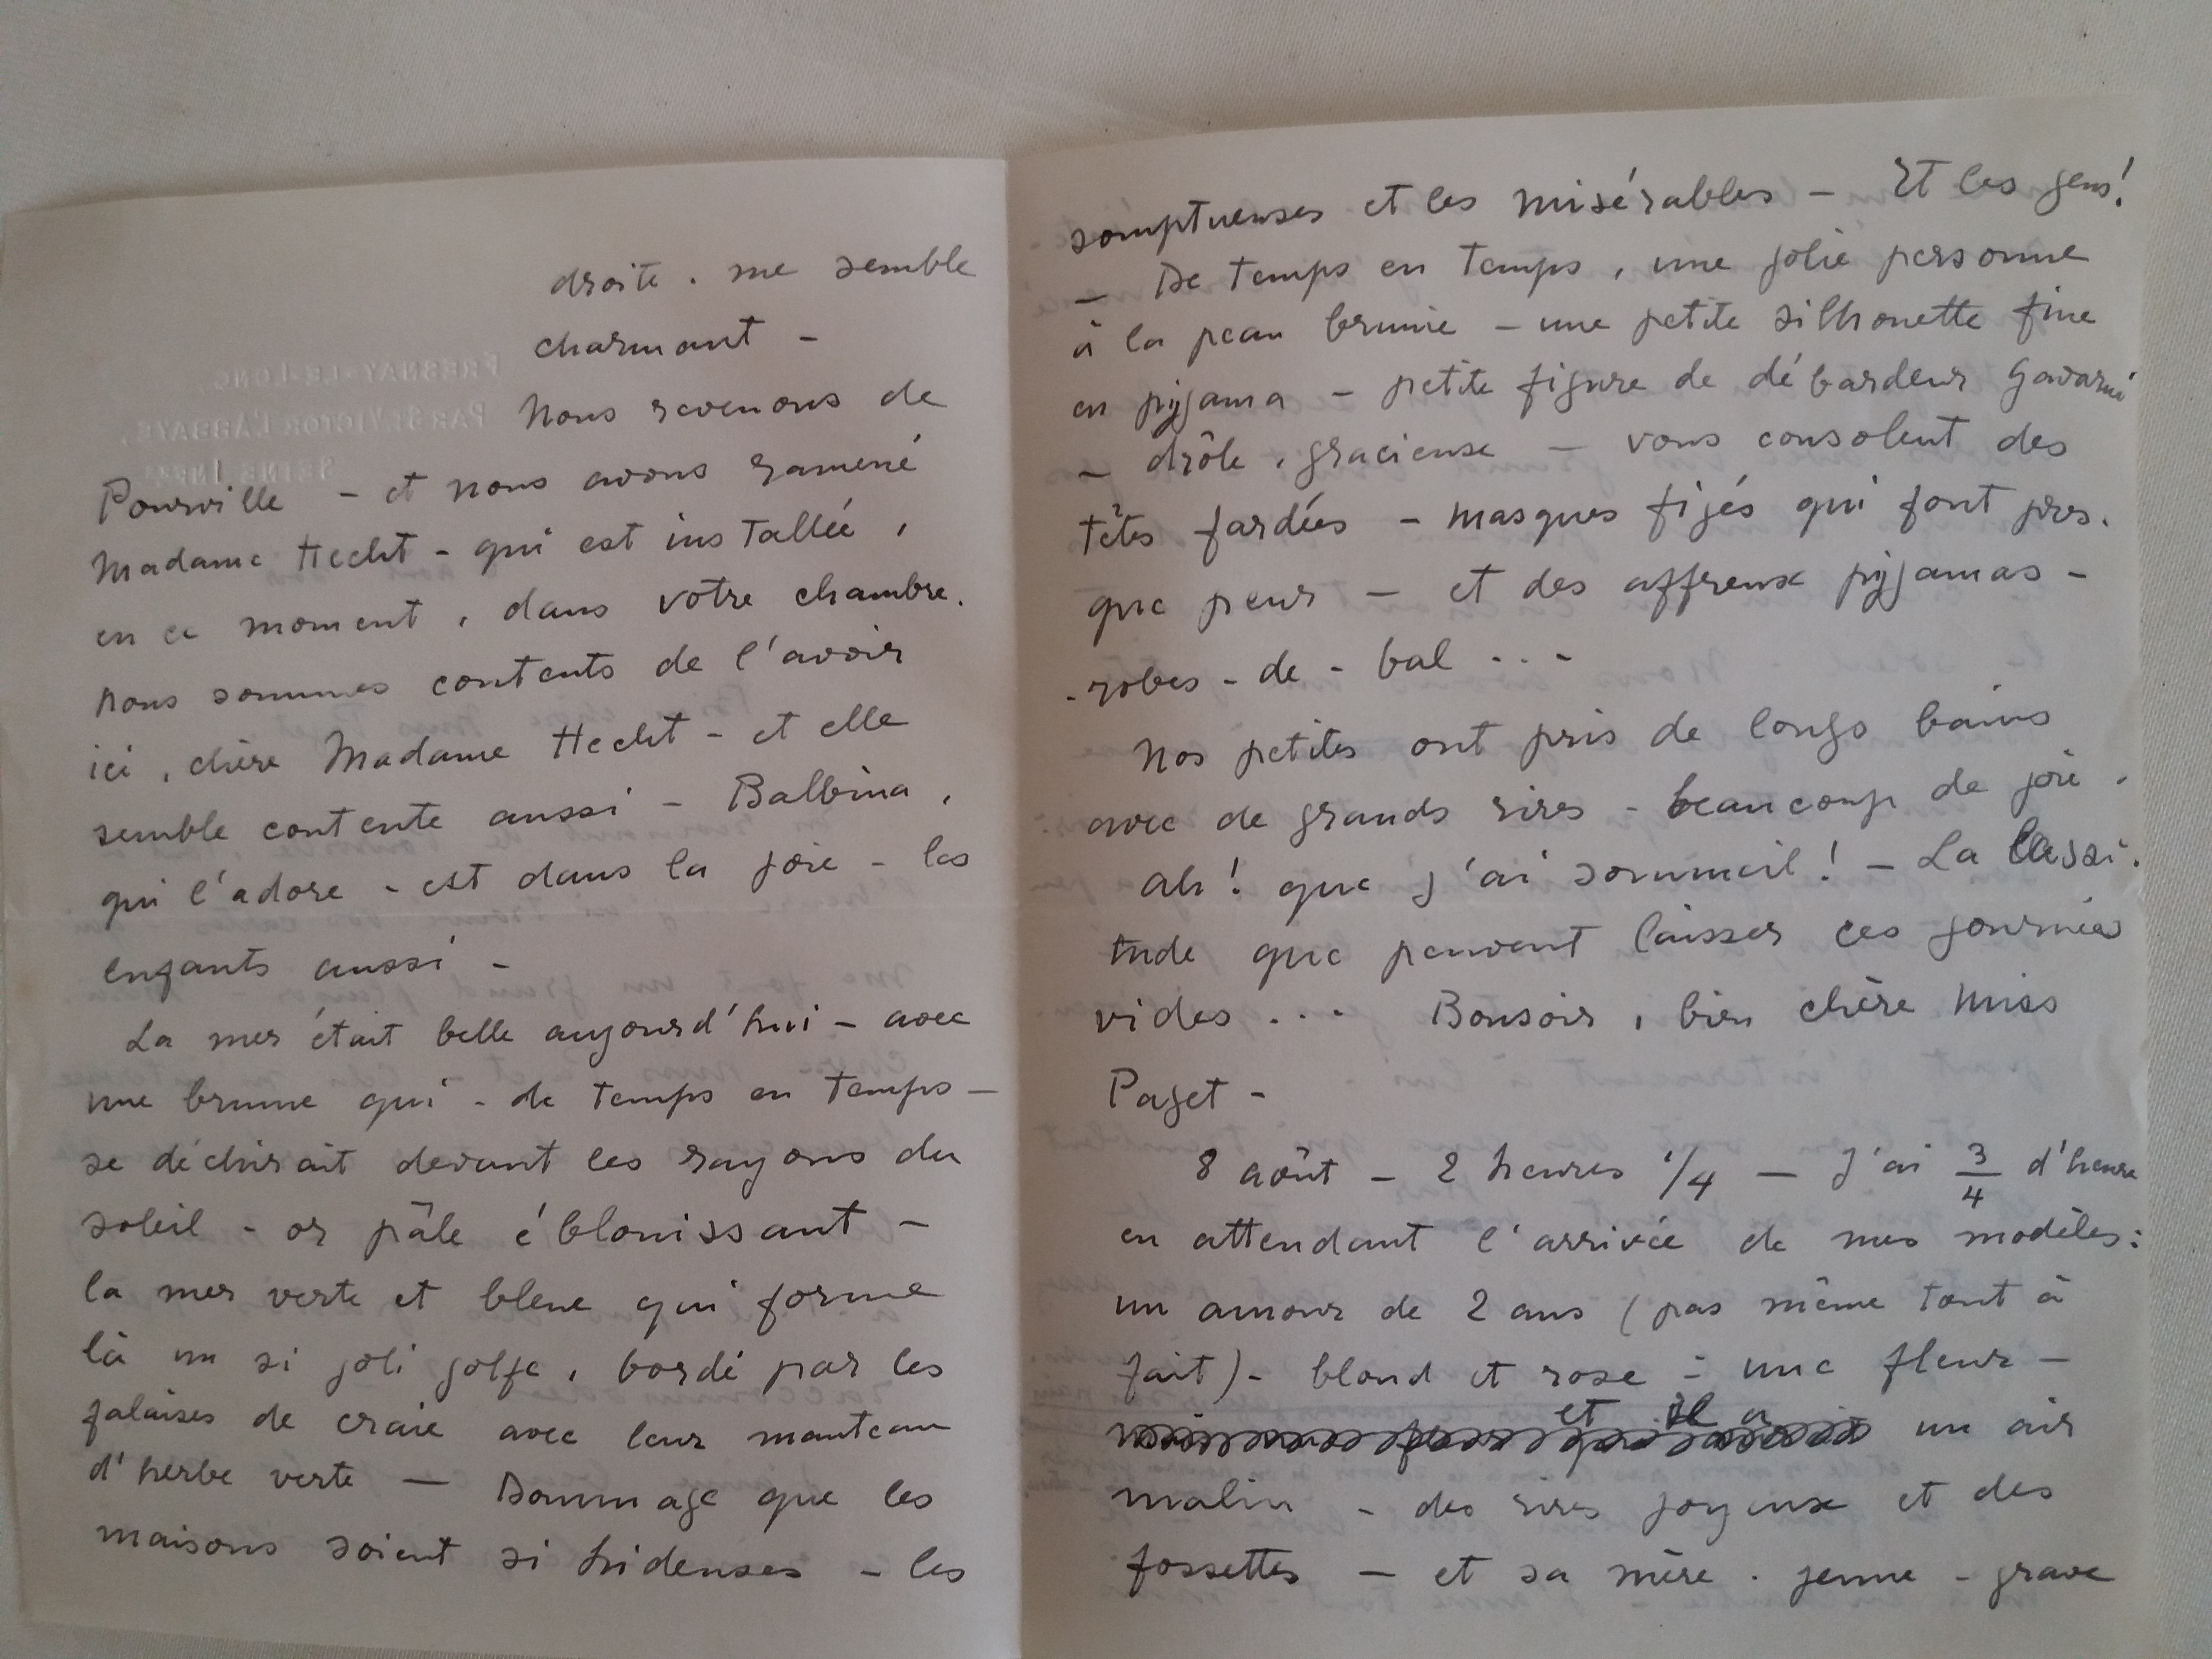 droite. me semble
charmant -
Nous revenons de
Pourville - et nous avons ramené
Madame Hecht - qui est installée,
en ce moment, dans votre chambre.
Nous sommes contents de l'avoir
ici, chère Madame Hecht - et elle
semble contente aussi - Balbina,
qui l'adore - est dans la joie - les
enfants aussi -
La mer était belle aujourd'hui - avec
une brume qui - de temps en temps -
se déchirait devant les rayons du
soleil - or pâle éblouissant -
la mer verte et bleue qui forme
là un si joli golfe, bordé par les
falaises de craie avec leur manteau
d'herbe verte - Dommage que les
maisons soient si hideuses - les
FRESNAY-LE-LONG,
PAR ST VICTOR L'ABBAYE,
SEINE INFRE
somptueuses et les misérables - Et les gens!
- De temps en temps, une jolie personne
à la peau brunie - une petite silhouette fine
en pyjama - petite figure de débardeur Gavarni
- drôle, gracieuse - vous consolent des
têtes fardées - masques figés qui font pres.
que peur - et des affreux pyjamas -
- robes - de - bal ...
Nos petites ont pris de longs bains
avec de grands rires - beaucoup de joie.
Ah! que j'ai sommeil! - La lassi.
tude que peuvent laisser ces journées
vides ... Bonsoir, bien chère Miss
Paget -
8 août - 2 heures 1/4 - J'ai 3/4 d'heure
en attendant l'arrivée de mes modèles:
un amour de 2 ans (pas même tout à
fait) - blond et rose - une fleur -
et il a un air
malin - des rires joyeux et des
fossettes - et sa mère. jeune - grave